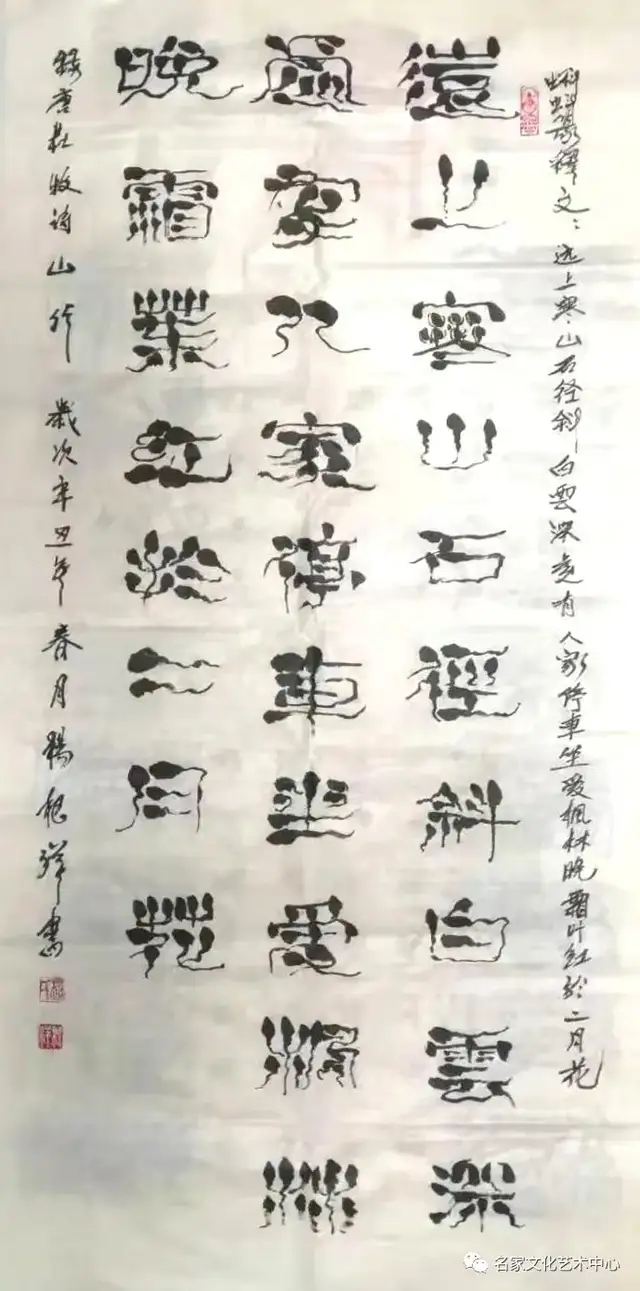 蝌蚪篆釋文：远上寒山石径斜白雲深處有人家停車坐爱枫林晚霜叶红於二月花
遠上寒山石徑斜白雲深
處有人家停車坐愛楓林
晚霜葉紅於二月花
録唐杜牧诗山行 歲次辛丑年春月楊根祥書
名家文化艺术中心